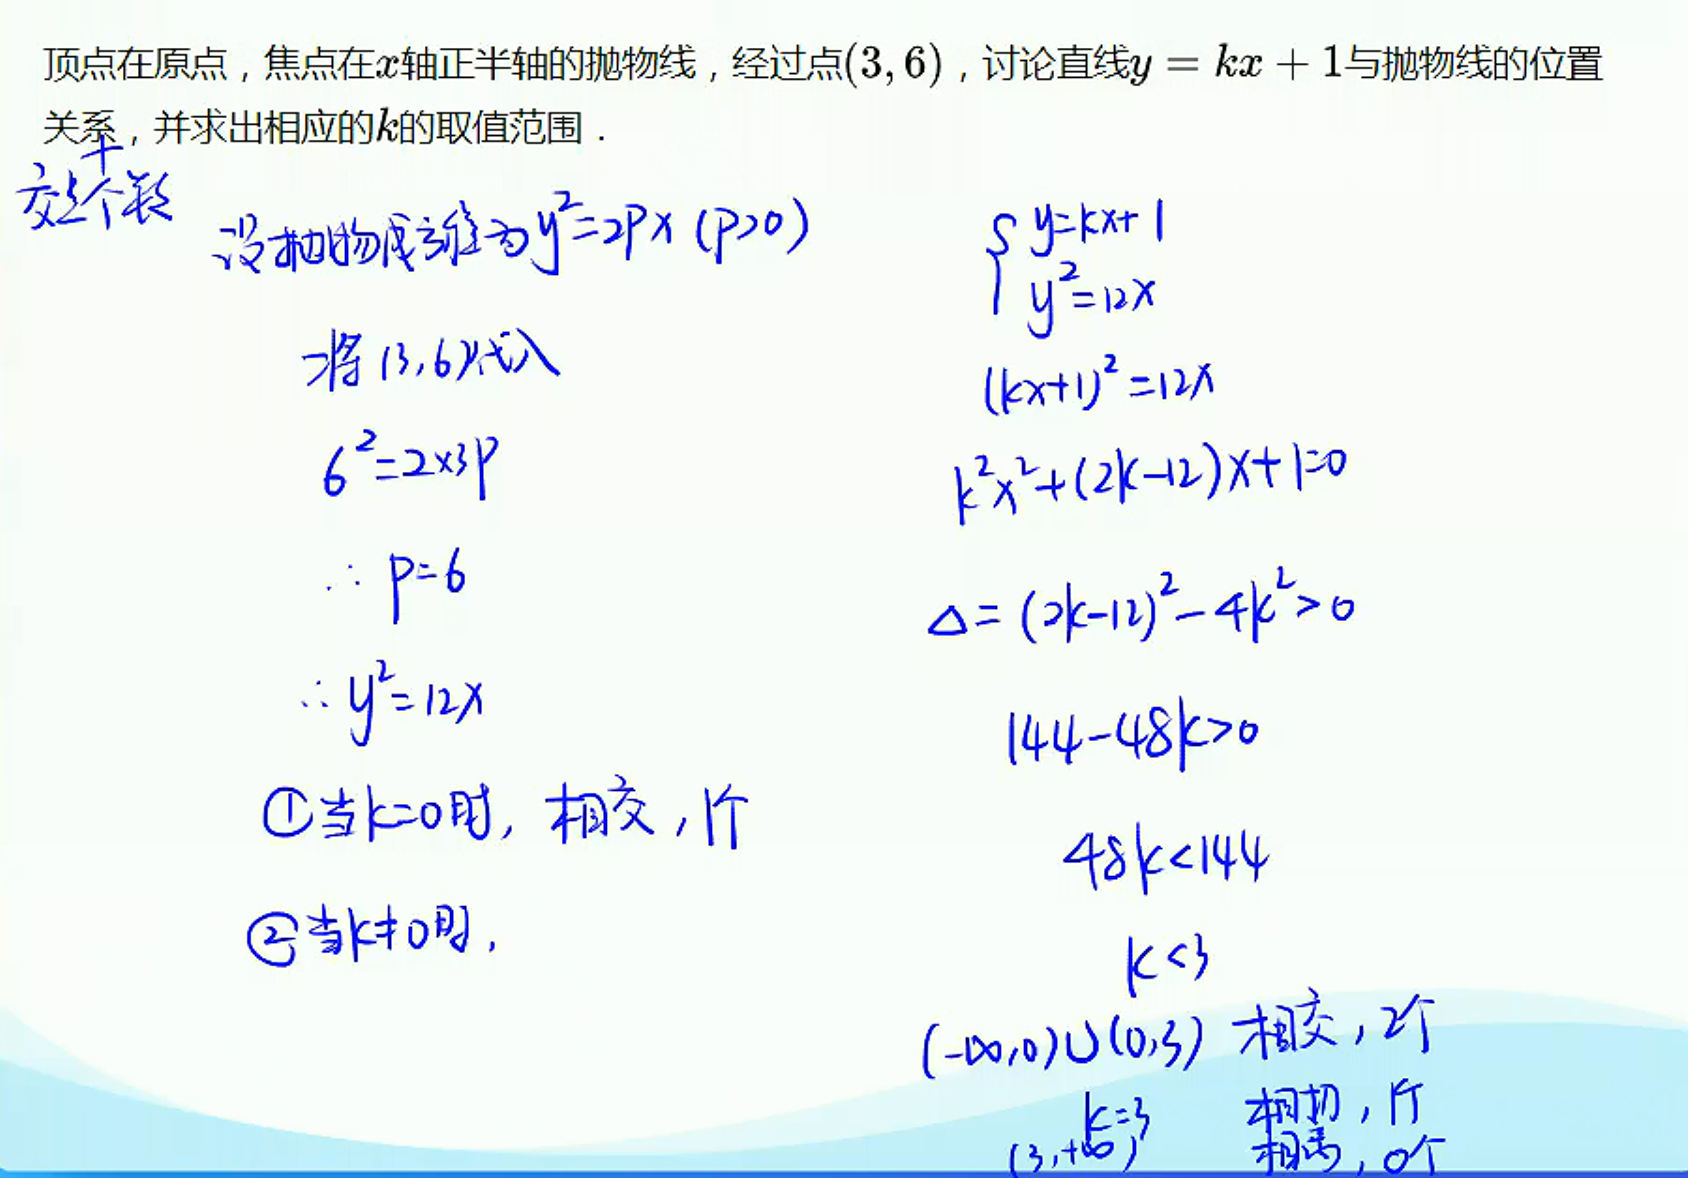 顶点在原点，焦点在x轴正半轴的抛物线，经过点(3, 6)，讨论直线y = kx + 1与抛物线的位置
关系，并求出相应的k的取值范围．
+
交点个数
设抛物线方程为y²=2px (p>0)
将(3,6)代入
6²=2×3p
∴ p=6
∴ y²=12x
①当k=0时, 相交, 1个
②当k≠0时,
{ y=kx+1
y²=12x
(kx+1)²=12x
k²x²+(2k-12)x+1=0
Δ=(2k-12)²-4k²>0
144-48k>0
48k<144
k<3
(-∞,0)∪(0,3) 相交, 2个
k=3 相切, 1个
(3,+∞) 相离, 0个